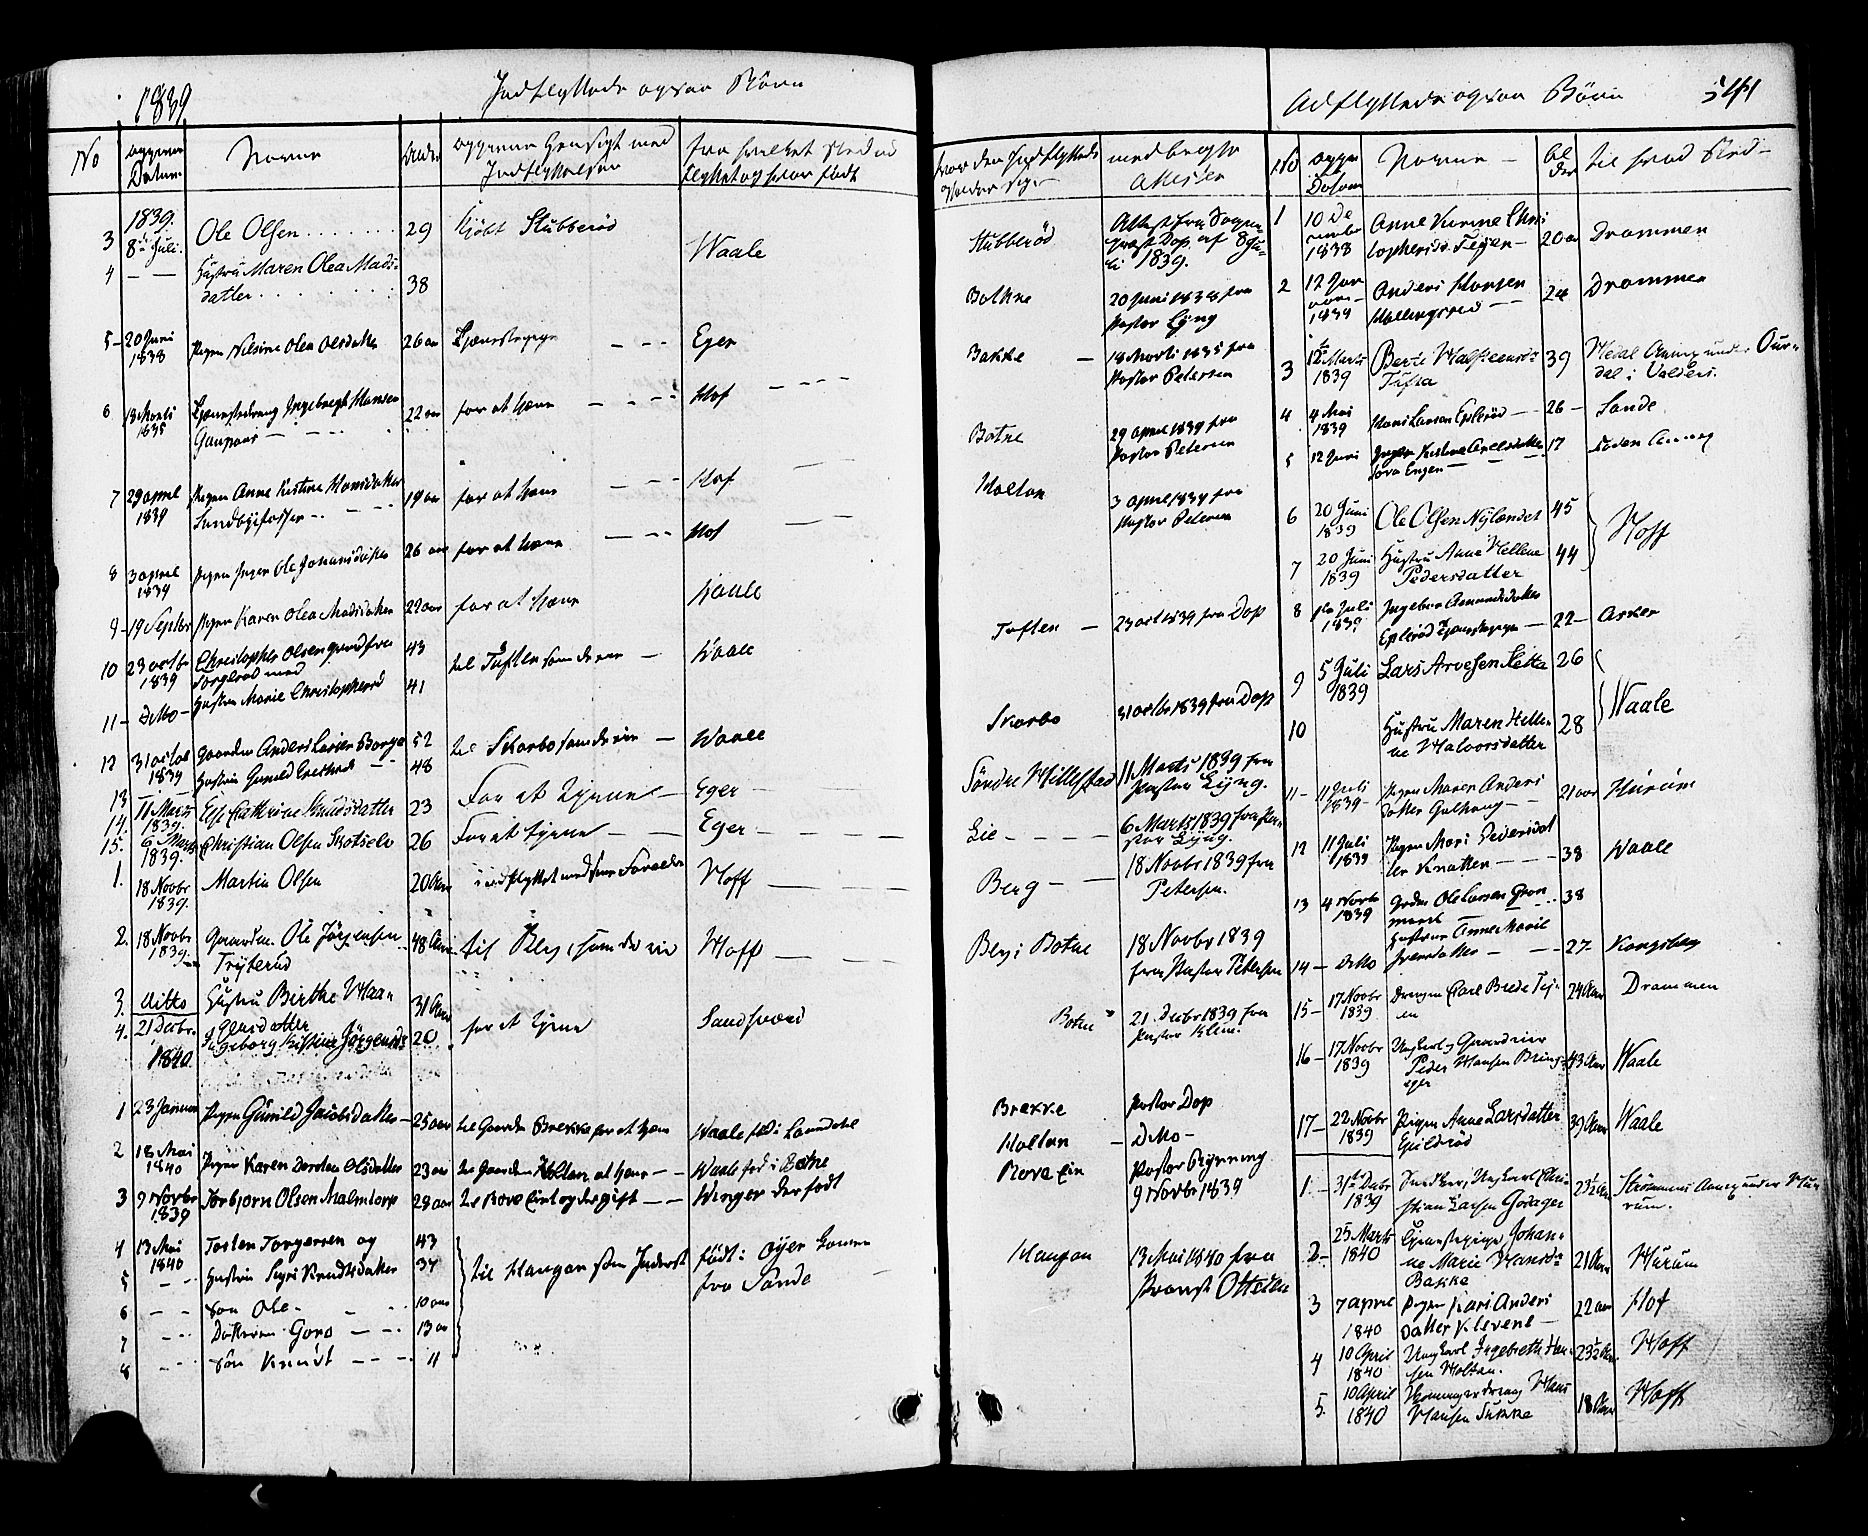 1839
Indflyttede ogsaa Börn
No
Datum
Navne
Alder
Indflyttelsen
3
1839.
8de Juli.
Ole Olsen
29
kjöbt Stubberöd
Waale
4
Hustru Maren Olea Mads-
datter
38
5
20 Juni
1838
Pigen Nilsine Olea Olsdatter
26 aar
Tjenestepige
Eger
6
1835
Tjenestedreng Ingebregt Hansen
22 aar
for at tjene
Hof
7
29 april
1839
Pigen Anne Kirstine Hansdatter
Sundbyefossen
19 aar
for at tjene
Hof
8
3 april
1839
Pigen Inger Ole Johannisdatter
26 aar
for at tjene
Hof
9
19 Septbr
Pigen Karen Olea Madsdatter
22 aar
for at tjene
Waale
10
23 octbr
1839
Christopher Olsen
43
til Tuften som de eier
Waale
11
Ditto
Hustru Marie Christophersd
41
12
31 octob
1839
Gaardm Anders Larsen Borge
52
til Skarbo som de eier
Waale
13
Hustru Gunild
48
14.
11 Marts
1839.
Else Cathrine Knudsdatter
23
For at tjene
Eger
15.
6 Marts
1839.
Christian Olsen Skotselv
26
For at tjene
Eger
1.
18 Novbr
1839.
Martin Olsen
20 Aar
indflyttet med sine Forældre
Hoff
2.
18 Novbr
1839.
Gaardm. Ole Jörgensen
Tryterud
48 Aar
til Berg som de eier
Hoff
3.
ditto
Hustru Birthe Haa-
gensdatter
31 Aar
4.
21 Decbr.
Ingeborg Kirstine Jörgensd
20
for at tjene
Sandsværd
1840
1
23 Januar
Pigen Gunild Jacobsdatter
25 aar
til Gaarden Brekke for at tjene
Waale föd i Laurdahl
2
18 Mai
1840
Pigen Karen Dorthea Olsdatter
23 aar
til Gaarden Holtan at tjene
Waale föd i Botne
3
9 Novbr
1839
Torbjorn Olsen Malmtorp
28 aar
Winger der födt
4
13 Mai
1840
Torsten Torgersen og
43
til Haugan som Inderst
födt i Öyer
fra Sande
5
Hustru Sigri Knudsdatter
37
6
Sön Ole
10 aar
7
Datteren Goro
13 aar
8
Sön Knudt
11
Udflyttede ogsaa Börn
541
hvor den Indflyttede
medbragte
Attester
No
Datum
Navne
Al
der
til hvad Sted
Stubberöd
Attest fra Sogne-
præst Dop af 8 Ju-
li 1839.
Bakke
20 Juni 1838 fra
Pastor Lyng
Bakke
Pastor Petersen
Botne
29 april 1839 fra
Pastor Petersen
Holtan
3 april 1839 fra
Pastor Petersen
Tuften
23 oct 1839 fra Dop
Skarbo
31 octbr 1839 fra Dop
Söndre Hillestad
11 Marts 1839 fra
Pastor Lyng.
Lie
6 Marts 1839 fra Pa-
stor Lyng.
Berg
18 Novbr 1839 fra
Petersen.
Berg i Botne
18 Novbr 1839
fra Pastor Petersen
Botne
21. Decbr 1839 fra
Pastor Klem.
Brekke
Pastor Dop
Holtan
Ditto
Pastor Rynning
9 Novbr 1839
Haugan
13 Mai 1840 fra
Provst Ottesen
1
10 De
cember
1838
Anne Karine Chri
20 aar
Drammen
2
12 Jan
uar
1839
Anders Hansen
24
Drammen
3
12te Marts
1839
39
Hedal Annex under Our-
dal i Valders.
4
4 Mai
1839
Hans Larsen Epleröd
26
Sande
5
12 Juni
17
6
20 Juni
1839
Ole Olsen Nylændet
45
Hoff
7
20 Juni
1839
Hustru Anne Hellene
Pedersdatter
44
8
1ste Juli
1839
Ingebor Amundsdatter
Eplröd Tjenestepige
22
Asker
9
5 Juli
1839
Lars Arvesen Sletta
26
Waale
10
Hustru Maren Helle-
ne Halvorsdatter
28
11
11 Juli
1839
Pigen Maren Anders
datter
21 aar
Hurum
12
11 Juli
1839
Pigen Mari Pedersdat
ter Knatten
38
Waale
13
4 Novbr
1839
Ole Larsen
38
14
ditto
Hustrue Anne Marie
Iversdatter
27
Kongsberg
15
17 Novbr
1839
Drengen Carl Brede Tej-
en
24 Aar
Drammen
16
17 Novbr
1839
Ungkarl og Gaardeier
Peder Hansen Bring-
ager
43 Aar
Waale
17
22 Novbr
1839
Pigen Anne Larsdatter
39 Aar
Waale
1
31te Decbr
1839
Ungkarl Chri-
stian Larsen
23½ Aar
Strömmens Annex under Hu-
rum.
2
25 Marts
1840
Tjenestepige Johan-
ne Marie Hansd:
Bakke
21 Aar
Hurum
3
7 april
1840
Pigen Kari Anders
datter Klevene
22 aar
Hof
4
10 April
1840
Ungkarl Ingebreth Han-
sen Holtan.
23½ Aar.
Hoff
5.
10 April
1840
Hans
Hansen Sukke
18 Aar
Hoff